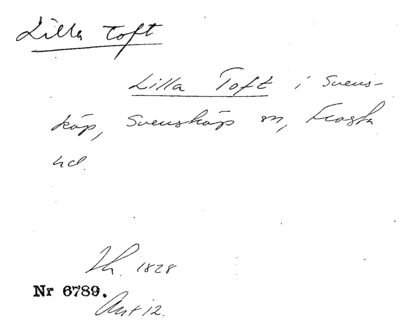 Lilla Toft
Lilla Toft i Svens-
köp, Svensköps sn, Frosta
hd.
Th. 1828
Nr 6789.
12.